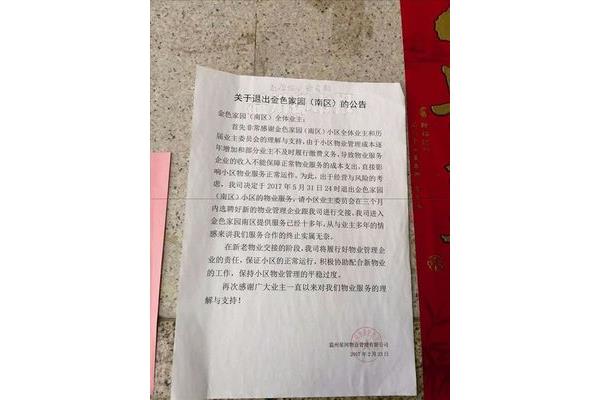 关于退出金色家园（南区）的公告
金色家园（南区）全体业主：
首先非常感谢金色家园（南区）小区全体业主和历
届业主委员会的理解与支持，由于小区物业管理成本逐
年增加和部分业主不及时履行缴费义务，导致物业服务
企业的收入不能保障正常物业服务的成本支出，直接影
响小区物业服务正常运作。为此，出于经营与风险的考
虑，我司决定于2017年5月31日24时退出金色家园
（南区）小区的物业服务；请小区业主委员会在三个月
内选聘好新的物业管理企业跟我司进行交接，我司进入
金色家园南区提供服务已经十多年，从与业主多年的情
感来讲我们服务合作的终止实属无奈。
在新老物业交接的阶段，我司将履行好物业管理企
业的责任，保证小区的正常运行，积极协助配合新物业
的工作，保持小区物业管理的平稳过度。
再次感谢广大业主一直以来对我们物业服务的理
解与支持！
温州星河物业管理有限公司
2017年2月23日